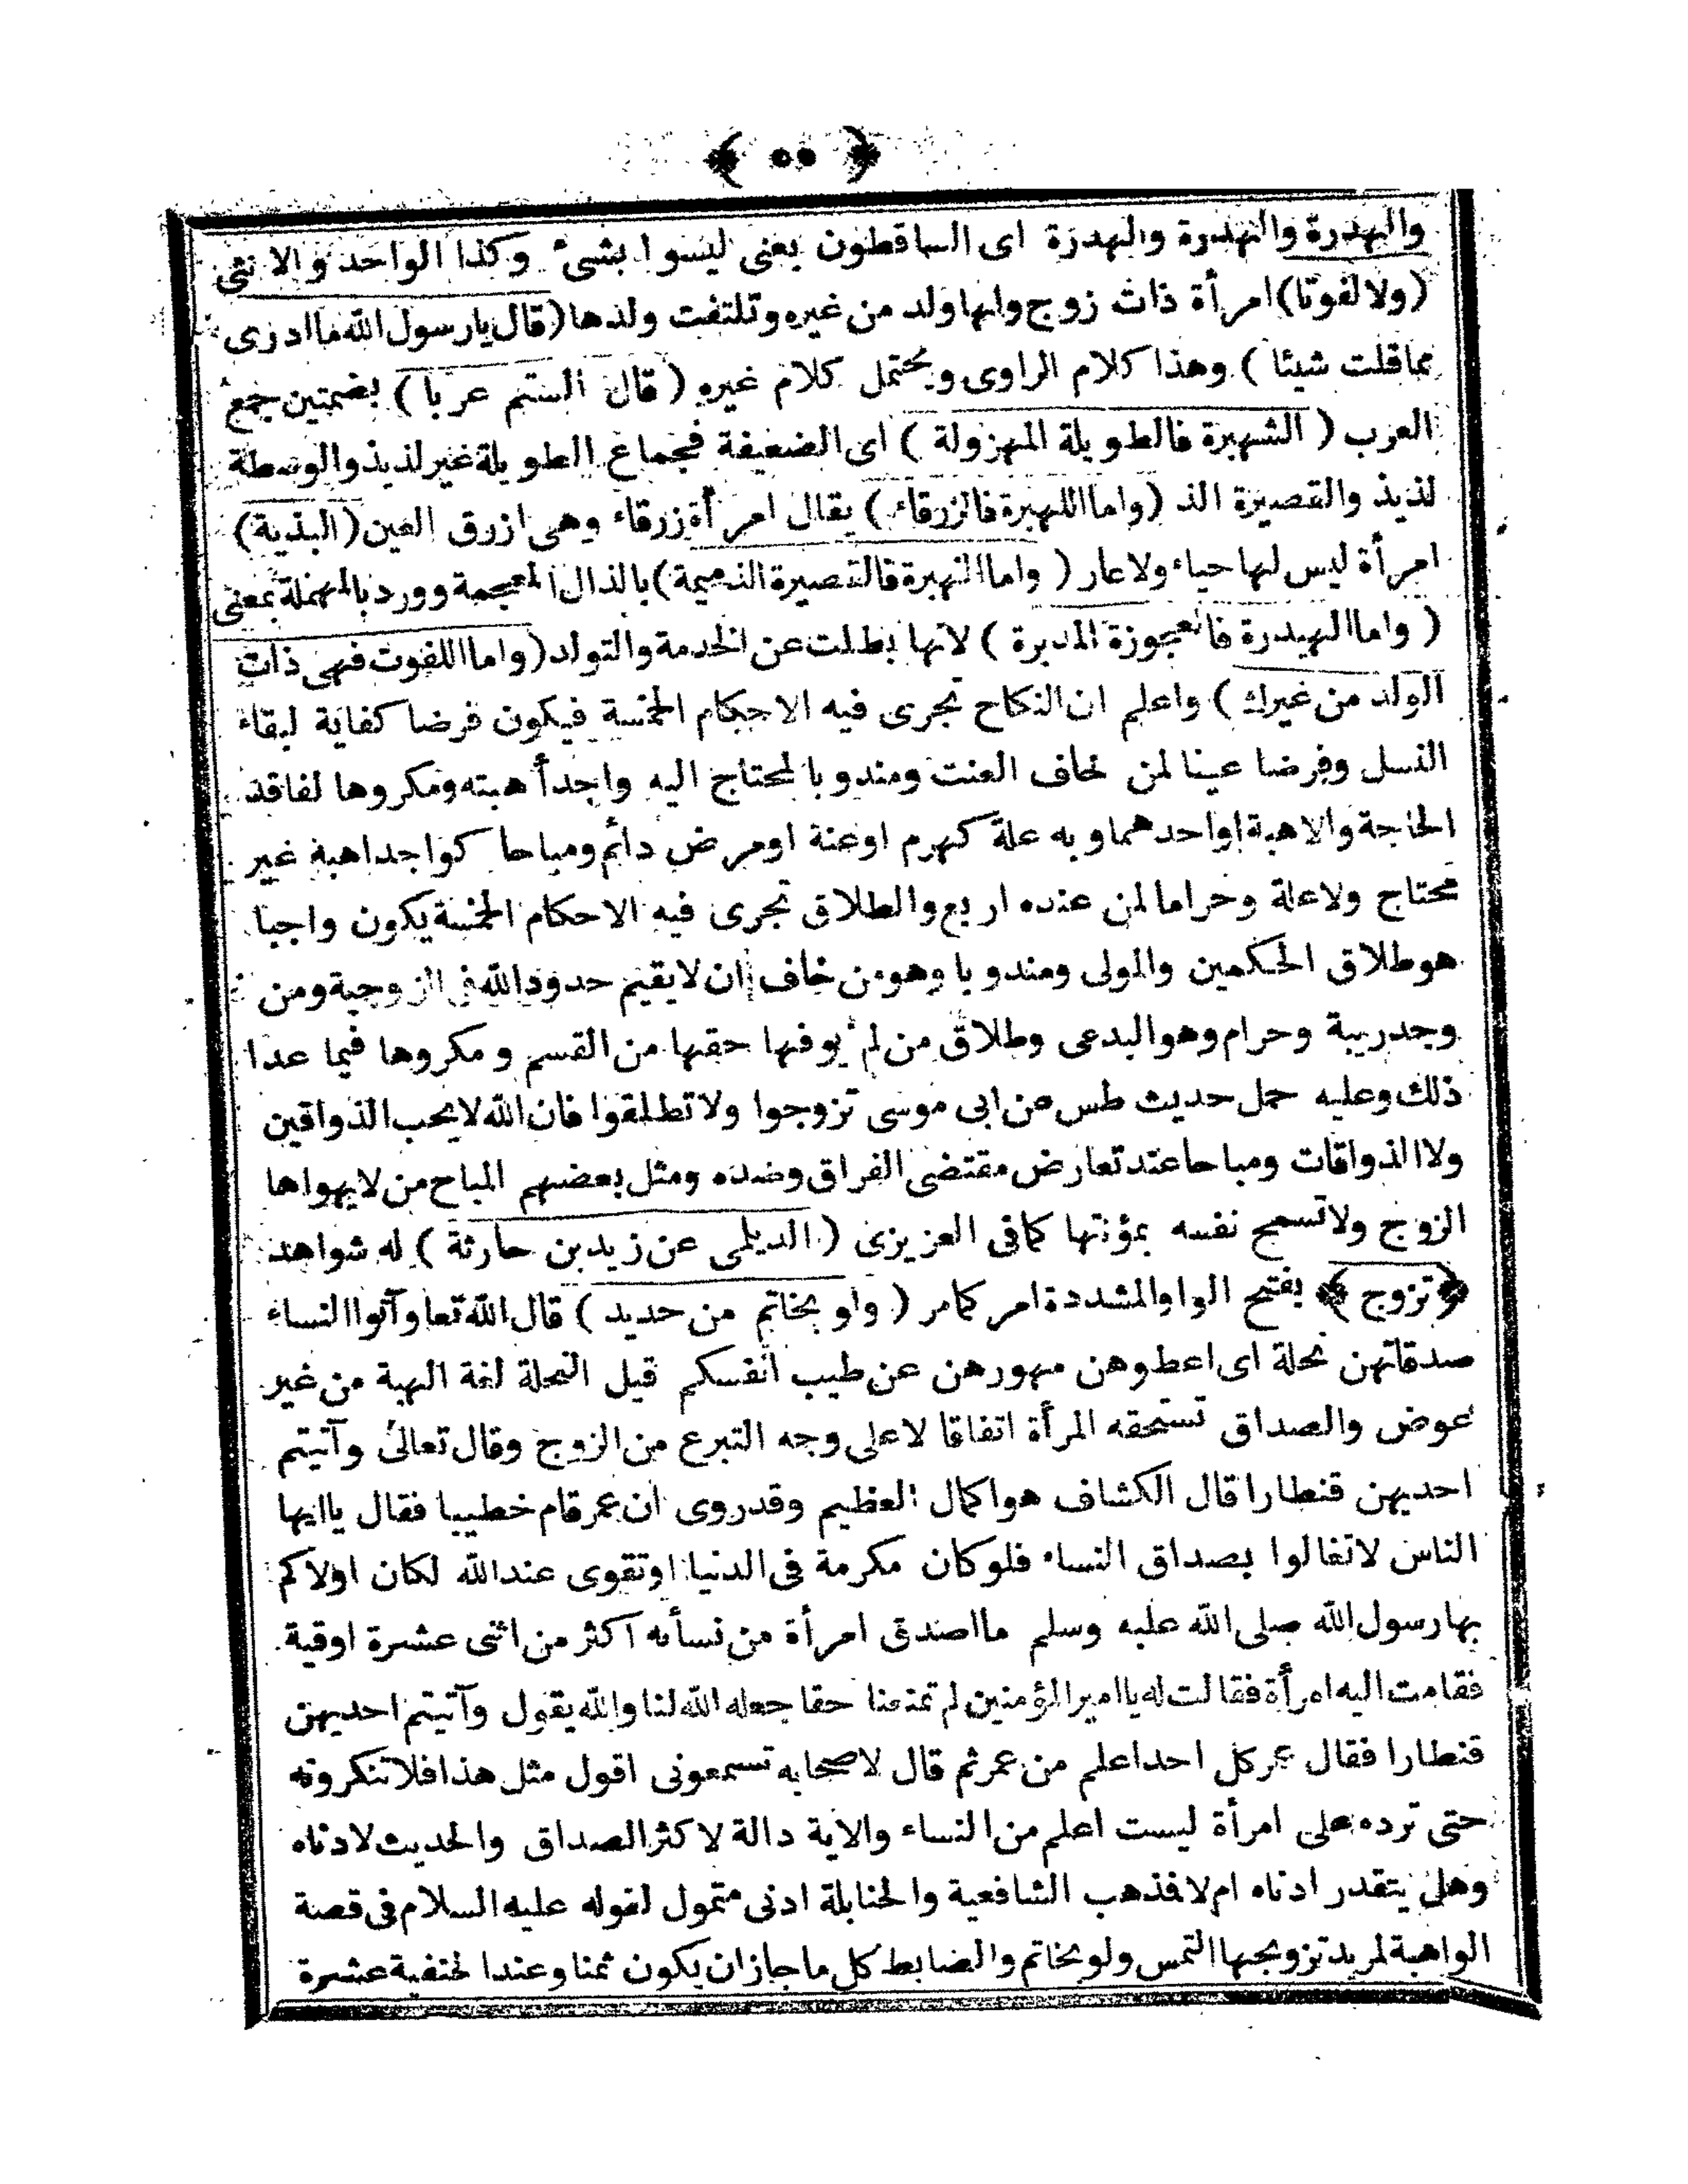 ﴿ ٥٥ ﴾
والهدرة والهدرة والهدرة اى الساقطون يعنى ليسوا بشئ وكذا الواحد والانثى
(ولا لفوتا) امرأة ذات زوج ولها ولد من غيره وتلتفت ولدها (قال يارسول الله ماادرى
مماقلت شيئا) وهذا كلام الراوى ويحتمل كلام غيره (قال الستم عربا) بضمتين جمع
العرب (الشهبرة فالطويلة المهزولة) اى الضعيفة فجماع الطويلة غير لذيذ والوسطة
لذيذ والقصيرة الذ (واما اللهبرة فالزرقاء) يقال امرأة زرقاء وهى ازرق العين (البذية)
امرأة ليس لها حياء ولا عار (واما النهبرة فالقصيرة الذميمة) بالذال المعجمة وورد بالمهملة بمعنى
(واما الهيدرة فالعجوزة المدبرة) لانها بطلت عن الخدمة والتولد (واما اللفوت فهى ذات
الولد من غيرك) واعلم ان النكاح تجرى فيه الاحكام الخمسة فيكون فرضا كفاية لبقاء
النسل وفرضا عينا لمن خاف العنت ومندوبا لمحتاج اليه واجدأ هبته ومكروها لفاقد
الحاجة والاهبة او احدهما وبه علة كهرم اوعنة اومرض دائم ومباحا كواجد اهبة غير
محتاج ولاعلة وحراما لمن عنده اربع والطلاق تجرى فيه الاحكام الخمسة يكون واجبا
هو طلاق الحكمين والمولى ومندوبا وهو من خاف ان لا يقيم حدود الله فى الزوجية ومن
وجد ريبة وحرام وهو البدعى وطلاق من لم يوفها حقها من القسم ومكروها فيما عدا
ذلك وعليه حمل حديث طس عن ابى موسى تزوجوا ولا تطلقوا فان الله لا يحب الذواقين
ولاالذواقات ومباحا عند تعارض مقتضى الفراق وضده ومثل بعضهم المباح من لا يهواها
الزوج ولا تسمح نفسه بمؤنتها كمافى العزيزى (الديلمى عن زيد بن حارثة) له شواهد
﴿تزوج﴾ بفتح الواو المشددة امر كمامر (ولو بخاتم من حديد) قال الله تعا وآتوا النساء
صدقاتهن نحلة اى اعطوهن مهورهن عن طيب انفسكم قيل النحلة لغة الهبة من غير
عوض والصداق تستحقه المرأة اتفاقا لا على وجه التبرع من الزوج وقال تعالى وآتيتم
احديهن قنطارا قال الكشاف هواكمال العظيم وقدروى ان عمر قام خطيبا فقال ياايها
الناس لا تغالوا بصداق النساء فلوكان مكرمة فى الدنيا اوتقوى عند الله لكان اولاكم
بها رسول الله صلى الله عليه وسلم مااصدق امرأة من نسأنه اكثر من اثنى عشرة اوقية
فقامت اليه امرأة فقالت له ياامير المؤمنين لم تمنعنا حقا جعله الله لنا والله يقول وآتيتم احديهن
قنطارا فقال عمر كل احد اعلم من عمر ثم قال لاصحابه تسمعونى اقول مثل هذا فلا تنكرونه
حتى ترده على امرأة ليست اعلم من النساء والاية دالة لاكثر الصداق والحديث لادناه
وهل يتقدر ادناه ام لا فذهب الشافعية والحنابلة ادنى متمول لقوله عليه السلام فى قصة
الواهبة لمريد تزويجها التمس ولو بخاتم والضابط كل ماجاز ان يكون ثمنا وعند الحنفية عشرة